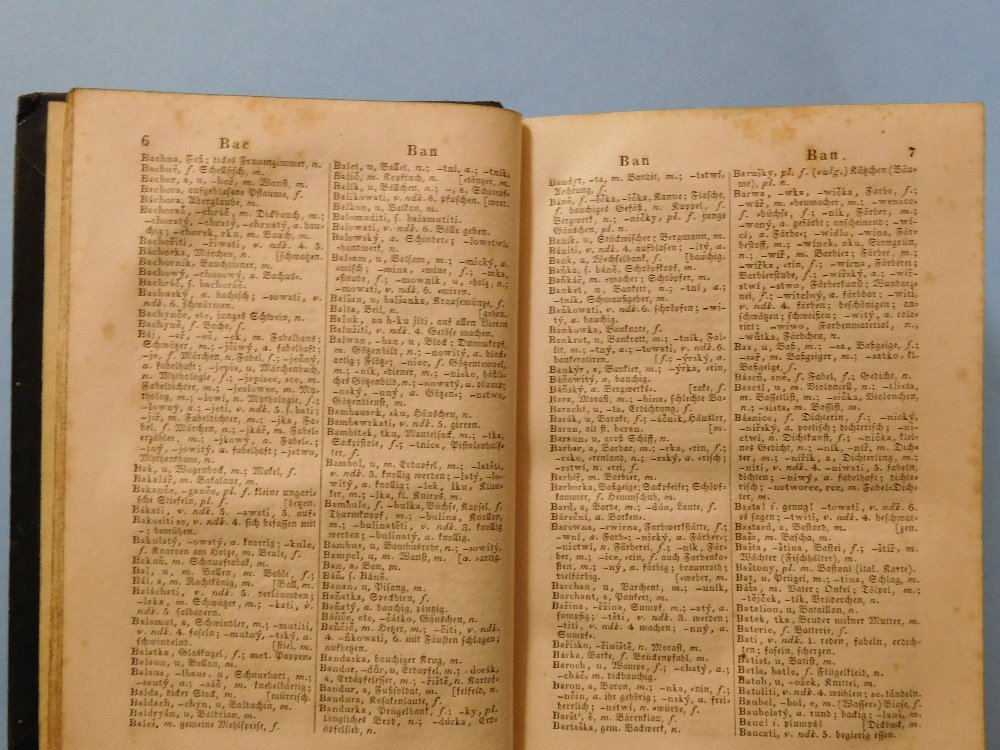 6
Bac
Ban
Bachna, Fuß; dickes Frauenzimmer, n.
Bachně, f. Schellfisch, m.
Bachor, a, u, -kář, m. Wanst, m.
Bachora, aufgeblasene Pflaume, f.
Báchora, Aberglaube, m.
Bachoráč, -chráč, m. Dickbauch, m.;
-choratý, -chratý, -chrnatý, a. bau-
chig; -chorek, rku, m. Bauch, m.
Bachořiti, -řiwati, v. ndk. 4. 5.
Báchorka, Märchen, n. [schwatzen.
Bachorník, Bauchdiener, m.
Bachowý, -chusowý, a. Bachus-
Bachráč, s. bachoráč.
Bachuský, a. bachisch; -sowati, v.
ndk. 6. schwärmen.
Bachyňče, etc, junges Schwein, n.
Bachyně, f. Bache, f.
Báj, -ař, -eč, -ek, m. Fabelhans;
Schwätzer, m.; -jčiwý, a. fabelhaft;
-je, f. Märchen, n. Fabel, f.; -ječný,
a. fabelhaft; -jepis, u, Märchenbuch,
n. Mythologie, f.; -jepisec, sce, m.
Fabeldichter, m.; -jeslowec, m. My-
tholog, m.; -lowí, n. Mythologie, f.;
-lowný, a.; -jeti, v. ndk. 5. s. bati;
-jíř, m. Fabeldichter, m.; -jka, Fa-
bel, f. Märchen, n.; -jkář, m. Fabel-
erzähler, m.; -jkowý, a. Fabel-;
-jný, -jowitý, a. fabelhaft; -jstwo,
Mythenthum, n.
Bak, u, Wagenbock, m.; Makel, f.
Bakalář, m. Bakalaur, m.
Bakanče, -ganče, pl. f. kleine ungari-
sche Stiefeln, pl. f. [hetzen.
Bákati, v. ndk. 5. -awati, 5. auf-
Bakořiti se, v. ndk. 4. sich befassen mit
; bemühen.
Bakulatý, -owatý, a. knorrig; -kule,
f. Knorren am Holze, m. Beule, f.
Bakuň, m. Schnupftabak, m.
Bal, u, m. Ballen, m. Bohle, f.;
Bál, a, m. Nachtkönig, m. [Ball, m.
Baláchati, v. ndk. 5. verläumden;
-laka, m. Schwätzer, m.; -kati, v.
ndk. 5. salbadern.
Balamut, a, Schwindler, m.; -mutiti,
v. ndk. 4. faseln; -mutný, -tský, a.
schwindelnd. [stiel, m.
Balatka, Glaskugel, f.; met. Pappen-
Balaun, u, Ballon, m.
Balaus, -lhaus, u, Schnurbart, m.;
-satý, a.; -sáč, m. knebelbärtig;
Balda, dicker Stock, m. [mürrisch.
Baldach, -chyn, u, Baldachin, m.
Baldryán, u, Baldrian, m.
Baleš, m. gemeine Mehlspeise, f.
Balet, u, Ballet, n.; -tní, a.; -tník,
Balíč, m. Kopftuch, n. [-tänzer, m.
Balík, u, Bällchen, n.; -, a, Schmus-
Balikowati, v. ndk. 6. pfuschen. [west.
Balkon, u, Balkon, m.
Balomutiti, s. balamutiti.
Balowati, v. ndk. 6. Bälle geben.
Balowský, a. Schinder-; -lowstwí,
-handwerk, n.
Balsam, u, Balsam, m.; -mický, a.
-misch; -mina, -mine, f.; -mka,
-staude, f.; -mowník, u, -holz, n.;
-mowati, v. ndk. 6. -miren.
Balšan, u, balšanka, Krausemünze, f.
Balta, Beil, n. [gehen.
Baluk, na b-ku jíti, auf allen Vieren
Balužiti, v. ndk. 4. Getöse machen.
Balwan, -ban, u, Block; Dummkopf,
m. Götzenbild, n.; -nowitý, a. block-
artig; Flöße; -nice, f. Götzentempel,
m.; -ník, -diener, m.; -nisko, häßli-
ches Götzenbild, n.; -nowatý, a. plump;
-nský, -nný, a. Götzen-; -nstwo,
Götzendienst, m.
Bambausek, sku, Häuschen, n.
Bambawrkati, v. ndk. 5. girren.
Bambitek, tku, Mantelsack, m.; -tka,
Sackpistole, f.; -tnice, Pistolenhalf-
ter, f.
Bambol, u, m. Erdapfel, m.; -latěti,
v. ndk. 3. knollig werden; -latý, -lo-
witý, a. knollig; -lek, lku, Klun-
ker, m.; -lka, kl. Knirps, m.
Bambule, f. -bulka, Büchse, Kapsel, f.
Thurmknopf, m.; -bulina, Knollen,
m.; -bulinatěti, v. ndk. 3. knollig
werden; -bulinatý, a. knollig.
Bambus, u, Bambusrohr, n.; -sowitý,
Bampel, u, m. Wanst, m. [a. -artig.
Ban, a, Ban, m.
Bán, s. Báně.
Banan, u, Pisang, m.
Baňatka, Speckbirn, f.
Baňatý, a. bauchig, plutzig.
Báňče, ete, -čátko, Gänschen, n.
Bančič, m. Hetzer, m.; -čiti, v. ndk.
4. -ňkowati, 6. mit Fäusten schlagen;
aufhetzen.
Bandaska, bauchiger Krug, m.
Bandor, -důr, u, Erdapfel, m.; -dorák,
a, Erdäpfelesser, m.; -řiště, n. Kartof-
Bandur, a, Fußsoldat, m. [felfeld, n.
Bandura, Kosakenlaute, f.
Bandurka, Prügelbank, f.; -ky, pl.
längliches Brod, n.; -důrka, Erd-
äpfelsieb, n.
Ban
Ban.
7
Bandyt, -ta, m. Bandit, m.; -tstwí,
Aechtung, f.
Báně, f. -ečka, -ička, Kanne; Flasche,
f. bauchiges Gefäß, n. Kuppel, f.
Bergwerk, n.; -ničky, pl. f. junge
Gänschen, pl. n.
Baník, u, Stückwischer; Bergmann, m.
Bániti, v. ndk. 4. aufblasen; -itý, a.
Bank, u, Wechselbank, f. [bauchig.
Baňka, s. báně, Schröpfkopf, m.
Baňkář, m. -macher; Schröpfer, m.
Banket, u, Bankett, n.; -tní, a.;
-tník, Schmausgeber, m.
Baňkowati, v. ndk. 6. schröpfen; -wi-
tý, a. bauchig.
Bankowka, Banknote, f.
Bankrot, u, Bankrott, m.; -tník, Fal-
lit, m.; -tný, a.; -towati, v. ndk. 6.
bankerotiren. [f.; -yřský, a.
Bankýř, a, Bankier, m.; -yřka, -rin,
Báňowitý, n. bauchig.
Báňský, a. Bergwerks-. [rake, f.
Bara, Morast, m.; -bina, schlechte Ba-
Baracht, u, -ta, Erdichtung, f.
Barák, u, Barake, f.; -áčník, Häusler,
Baran, alit st. beran. [m.
Baraun, u, groß Schiff, n.
Barbar, a, Barbar, m.; -rka, -rin, f.;
-rsko, -renland, n.; -rský, a. -risch;
-rstwí, n. -rei, f.
Barbíř, m. Barbier, m.
Barborka, Baßgeige; Sackpfeife; Schöpf-
kammer, f. Hemmschuh, m.
Bard, a, Barde, m.; -dún, Laute, f.
Báreční, a. Barken-.
Barewna, -rwírna, Farbwerkstätte, f.;
-wní, a. Farb-; -nický, a. Färber-;
-nictwí, n. Färberei, f.; -ník, Fär-
ber, m.; -ice, -rin, f. auch Farbenka-
sten, m.; -ný, a. färbig; braunroth;
vielfärbig. [-weber, m.
Barchan, u, Barchent, m.; -nník,
Barchant, s. Panker, m.
Bařina, -řžina, Sumpf, m.; -atý, a.
sumpfig; -atěti, v. ndk. 3. werden;
-titi, v. ndk. 4. machen; -nný, a.
Sumpf-.
Bařisko, -řiniště, n. Morast, m.
Barka, Barke, f. Brückenpfahl, m.
Baroch, u, Wampe, f.; -chatý, a.;
-cháč, m. dickbauchig.
Baron, a, Baron, m.; -nka, -nin, f.;
-nčin, a. ihr gehörig; -nský, a. frei-
herrlich; -nstwí, n. -würde, f.
Baršt', ě, m. Bärenklau, f.
Bartaška, gem. Backwerk, n.
Barušky, pl. f. (vulg.) Kätzchen (Bäu-
me), pl. n.
Barwa, -wka, -wička, Farbe, f.;
-wář, m. -benmacher, m.; -wenice,
f. -büchse, f.; -ník, Färber, m.;
-wený, a. gefärbt; anscheinend; -wí-
cí, a. Färbe-; -widlo, -wina, Fär-
bestoff, m.; -wínek, nku, Sinngrün,
n.; -wíř, m. Barbier; Färber, m.;
-wířka, -rin, f.; -wírna, Färberei;
Barbierstube, f.; -wířský, a.; -wíř-
stwí, -stwo, Färberkunst; Wundarz-
nei, f.; -witelný, a. färbbar; -witi,
v. ndk. 4. färben; beschönigen; an-
schwätzen; schweißen; -witý, a. colo-
rirt; -wiwo, Farbenmaterial, n.,
-wůtka, Färbchen, n.
Bas, u, Baß, m.; -sa, Baßgeige, f.;
-sař, m. Baßgeiger, m.; -satko, kl.
Baßgeige, f.
Báseň, sně, f. Fabel, f.; Gedicht, n.
Basetl, u, m. Violoncell, n.; -tlista,
m. Bassetlist, m.; -sička, Violonchen,
n.; -sista, m. Bassist, m.
Básnice, f. Dichterin, f.; -nický,
-nířský, a. poetisch; dichterisch; -ni-
ctwí, n. Dichtkunst, f.; -nička, klei-
nes Gedicht, n.; -ník, -níř, m. Dich-
ter, m.; -nířík, a. Dichterling, m.;
-niti, v. ndk. 4. -niwati, 5. fabeln,
dichten; -niwý, a. fabelhaft; dichte-
risch; -notworec, rce, m. Fabel-Dich-
ter, m.
Basta! i. genug! -towati, v. ndk. 6.
es sagen; -twiti, v. ndk. 4. beschwat-
Bastard, a, Bastard, m. [zen.
Baša, m. Bascha, m.
Bašta, -ština, Bastei, f.; -štíř, m.
Wächter (Fischhälter), m.
Baštony, pl. m. Bastoni (ital. Karte).
Bat, u, Prügel, m.; -tina, Schlag, m.
Báta, m. Vater; Onkel; Tölpel, m.;
-tějček, -tík, Brüderchen, n.
Batalion, u, Bataillon, n.
Batek, tka, Bruder meiner Mutter, m.
Baterie, f. Batterie, f.
Bati, v. ndk. 1. reden, fabeln, erdich-
ten; faseln, scherzen.
Batist, u, Batist, m.
Batla, batle, f. Flügelkleid, n.
Batoh, u, -ožek, Knittel, m.
Batoliti, v. ndk. 4. wühlen; se. tändeln.
Baubel, -bol, e, m. (Wasser-) Blase, f.
Baubelatý, a. rund; backig; -lauš, m.
Bauc! i. plumps! [Dickback, m.
Baucati, v. ndk. 5. begierig essen.